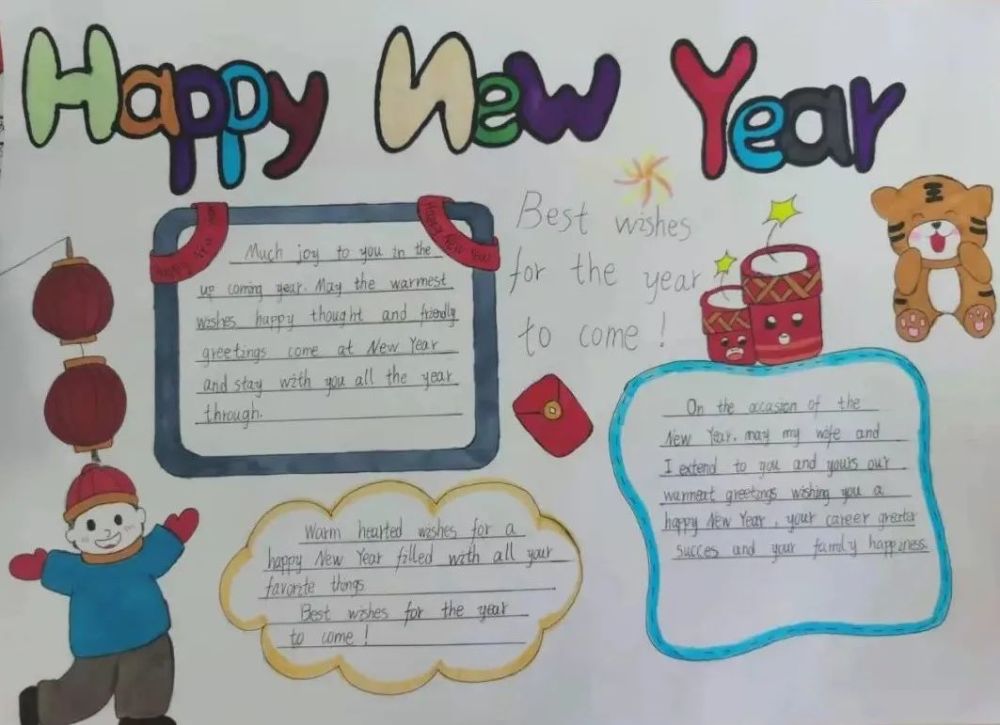 Happy New Year
Best wishes
for the year
to come !
Happy New Year
Much joy to you in the
up coming year. May the warmest
wishes happy thought and friendly
greetings come at New Year
and stay with you all the year
through.
On the occasion of the
New Year. may my wife and
I extend to you and yours our
warmeat greetings wishing you a
happy New Year, your career greater
succes and your family happiness.
Warm hearted wishes for a
happy New Year filled with all your
favorite things
Best wishes for the year
to come !